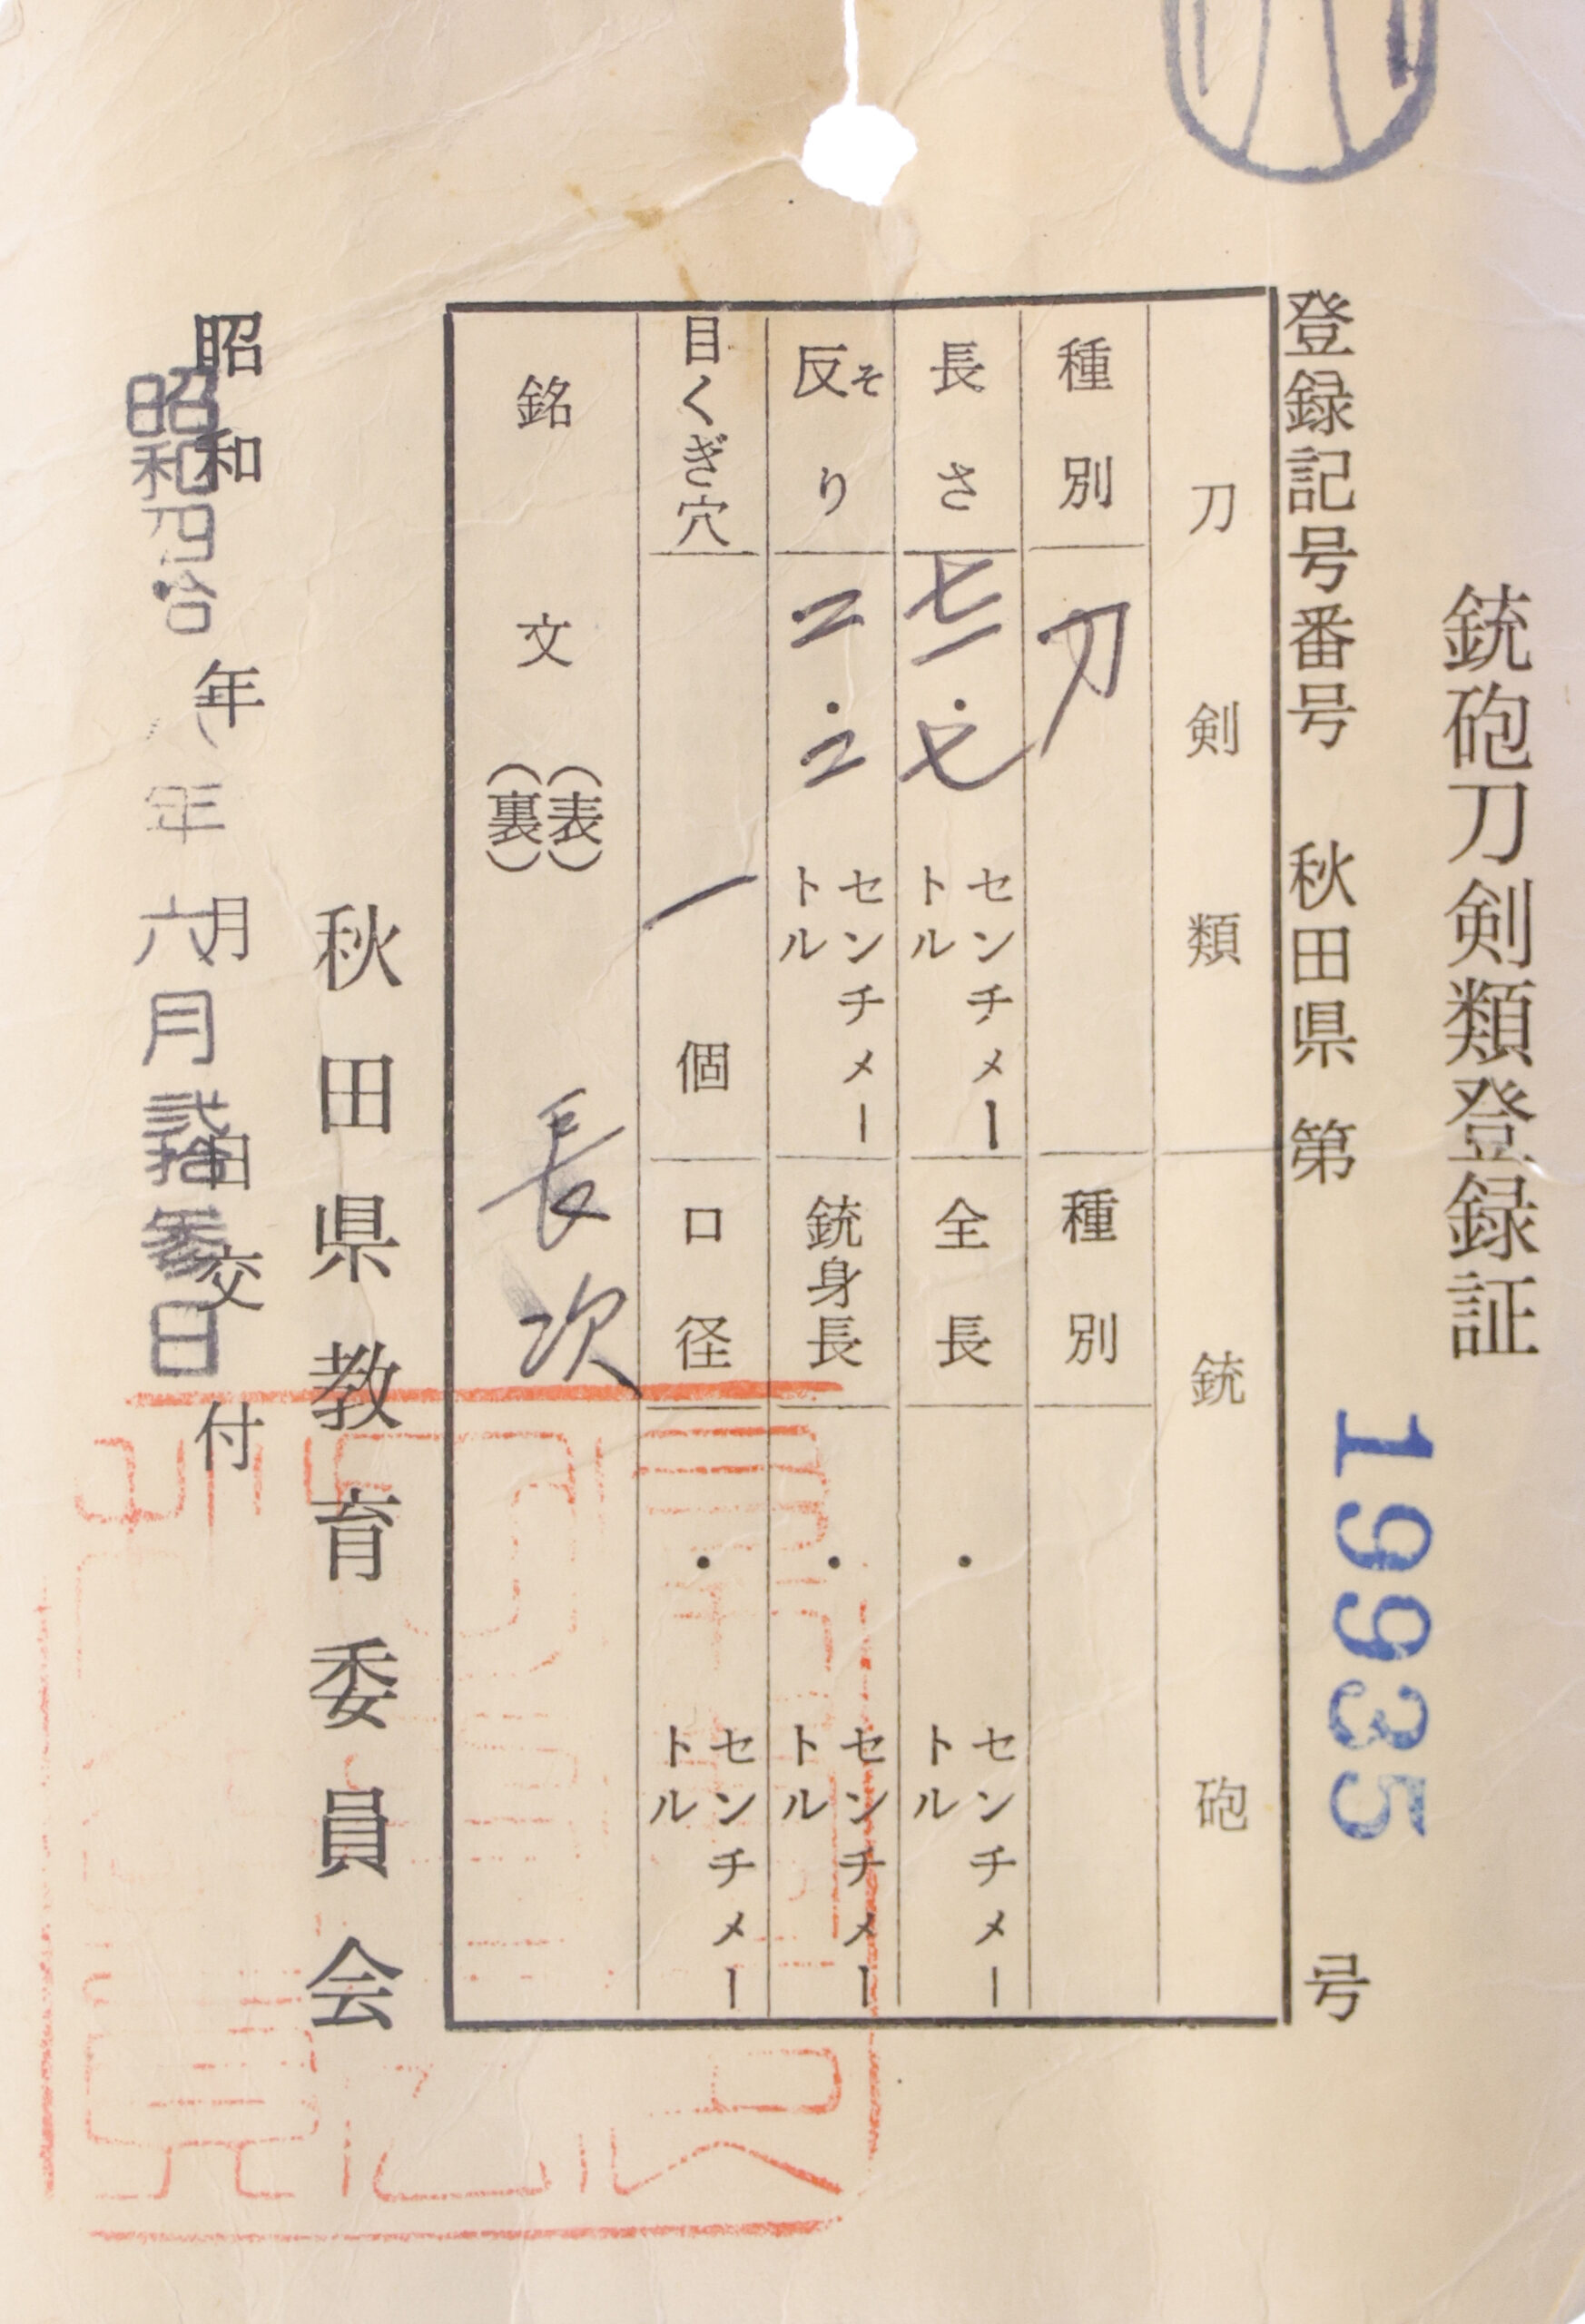 銃砲刀剣類登録証
登録記号番号 秋田県 第 19935 号
刀剣類
銃砲
種別 刀
種別
長さ 七一・七 センチメートル
全長 ・ センチメートル
反り そ 二・二 センチメートル
銃身長 ・ センチメートル
目くぎ穴 一 個
口径 ・ センチメートル
銘文 (表) (裏) 長次
秋田県教育委員会
昭和 年 月 日 交付
昭和四拾 年六月弐拾参日